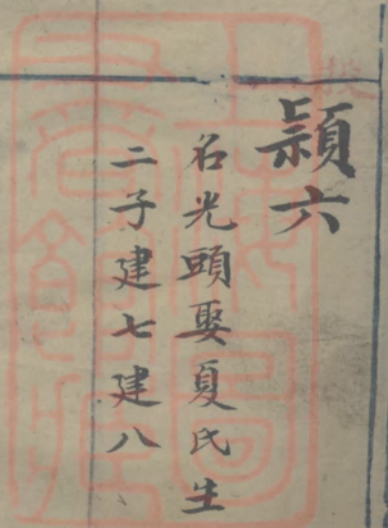 頴六
名光頭娶夏氏生
二子建七建八